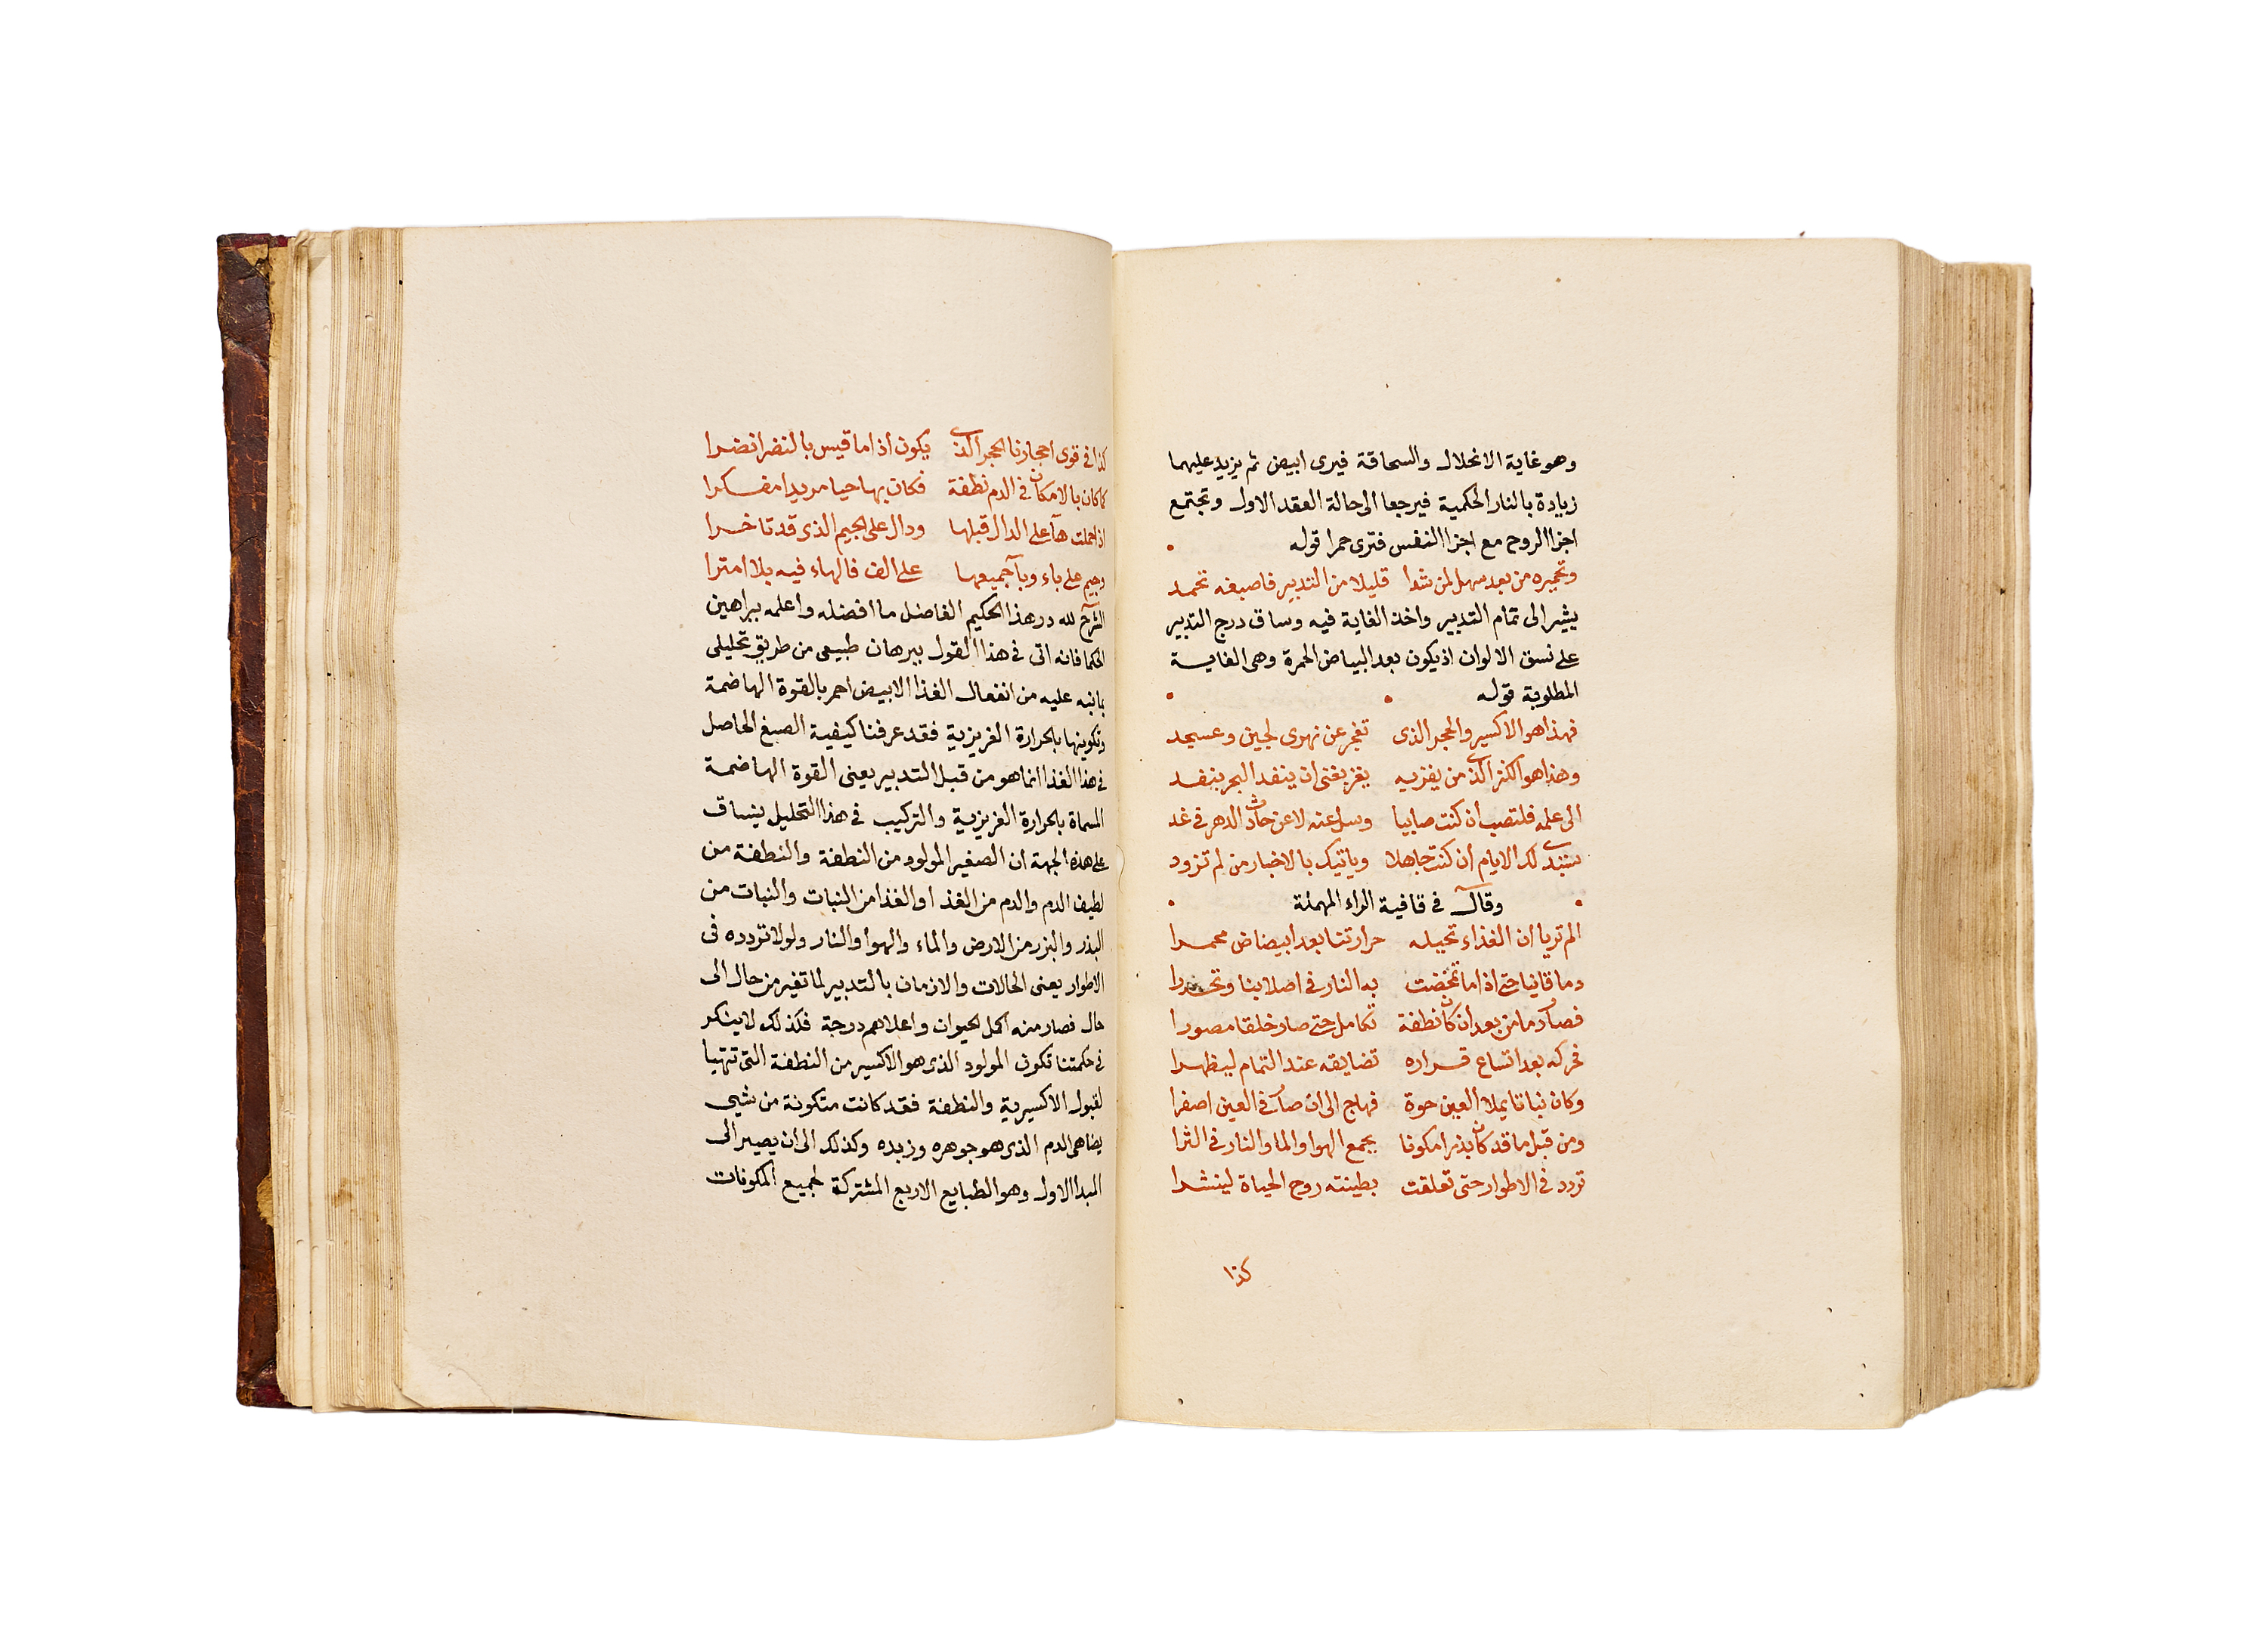 وهو غاية الانحلال والسحاقة فيرى ابيض ثم يزيد عليهما
زيادة بالنار الحكمية فيرجعا الى حالة العقد الاول وتجتمع
اجزا الروح مع اجزا النفس فترى حمرا قوله
وتحميره من بعد سهل لمن شدا قليلا من التدبير فاصبغه تحمد
يشير الى تمام التدبير واخذ الغاية فيه وساق درج التدبير
على نسق الالوان اذ يكون بعد البياض الحمرة وهى الغاية
المطلوبة قوله
فهذا هو الاكسير والحجر الذى تفجر عن نهرى لجين وعسجد
وهذا هو الكنز الذى من يفز به يفز بغنى ان ينفد البحر ينفد
الى علمه فلتصب ان كنت صابيا وسل عنه لا عن حادث الدهر فى غد
ستبدى لك الايام ان كنت جاهلا وياتيك بالاخبار من لم تزود
وقال فى قافية الراء المهملة
الم تر يا ان الغذاء تحيله حرارتنا بعد ابيضاض محمرا
دما قانيا حتى اذا ما تمخضت به النار فى اصلابنا وتحدرا
فصار دما من بعد ان كان نطفة تكامل حتى صار خلقا مصورا
فحركه بعد اتساع قراره تضايقه عند التمام ليظهرا
وكان نباتا يملا العين حوة فهاج الى ان صار فى العين اصفرا
ومن قبل ما قد كان بذرا مكونا بجمع الهوا والما والنار فى الثرا
تردد فى الاطوار حتى تعلقت بطينته روح الحياة لينشرا
كذا
كذا فى قوى احجارنا الحجر الذى يكون اذا ما قيس بالنضر انضرا
كما كان بالامكان فى الدم نطفة فكان بها حيا مريدا مفكرا
اذا حملت هآ على الدال قبلها ودال على الجيم الذى قد تاخرا
وجيم على باء وبآ جميعها على الف فالهاء فيه بلا امترا
الشرح لله در هذا الحكيم الفاضل ما افضله واعلمه ببراهين
الحكما فانه اتى فى هذا القول ببرهان طبيعى من طريق تحليلى
بما نبه عليه من انفعال الغذا الابيض احمر بالقوة الهاضمة
وتكوينها بالحرارة الغريزية فقد عرفنا كيفية الصبغ الحاصل
فى هذا الغذا انما هو من قبل التدبير يعنى القوة الهاضمة
المسماة بالحرارة الغريزية والتركيب فى هذا التحليل ينساق
على هذه الجهة ان الصغير المولود من النطفة والنطفة من
لطيف الدم والدم من الغذا والغذا من النبات والنبات من
البذر والبزر من الارض والماء والهوا والنار ولولا تردده فى
الاطوار يعنى الحالات والازمان بالتدبير لما تغير من حال الى
حال فصار منه اكمل الحيوان واعلاهم درجة فكذلك لا ينكر
فى حكمتنا تكون المولود الذى هو الاكسير من النطفة التى تتهيا
لقبول الاكسيرية والنطفة فقد كانت متكونة من شيى
يضاهى الدم الذى هو جوهره وزبده وكذلك الى ان يصير الى
البدا الاول وهو الطبايع الاربع المشتركة لجميع المكونات